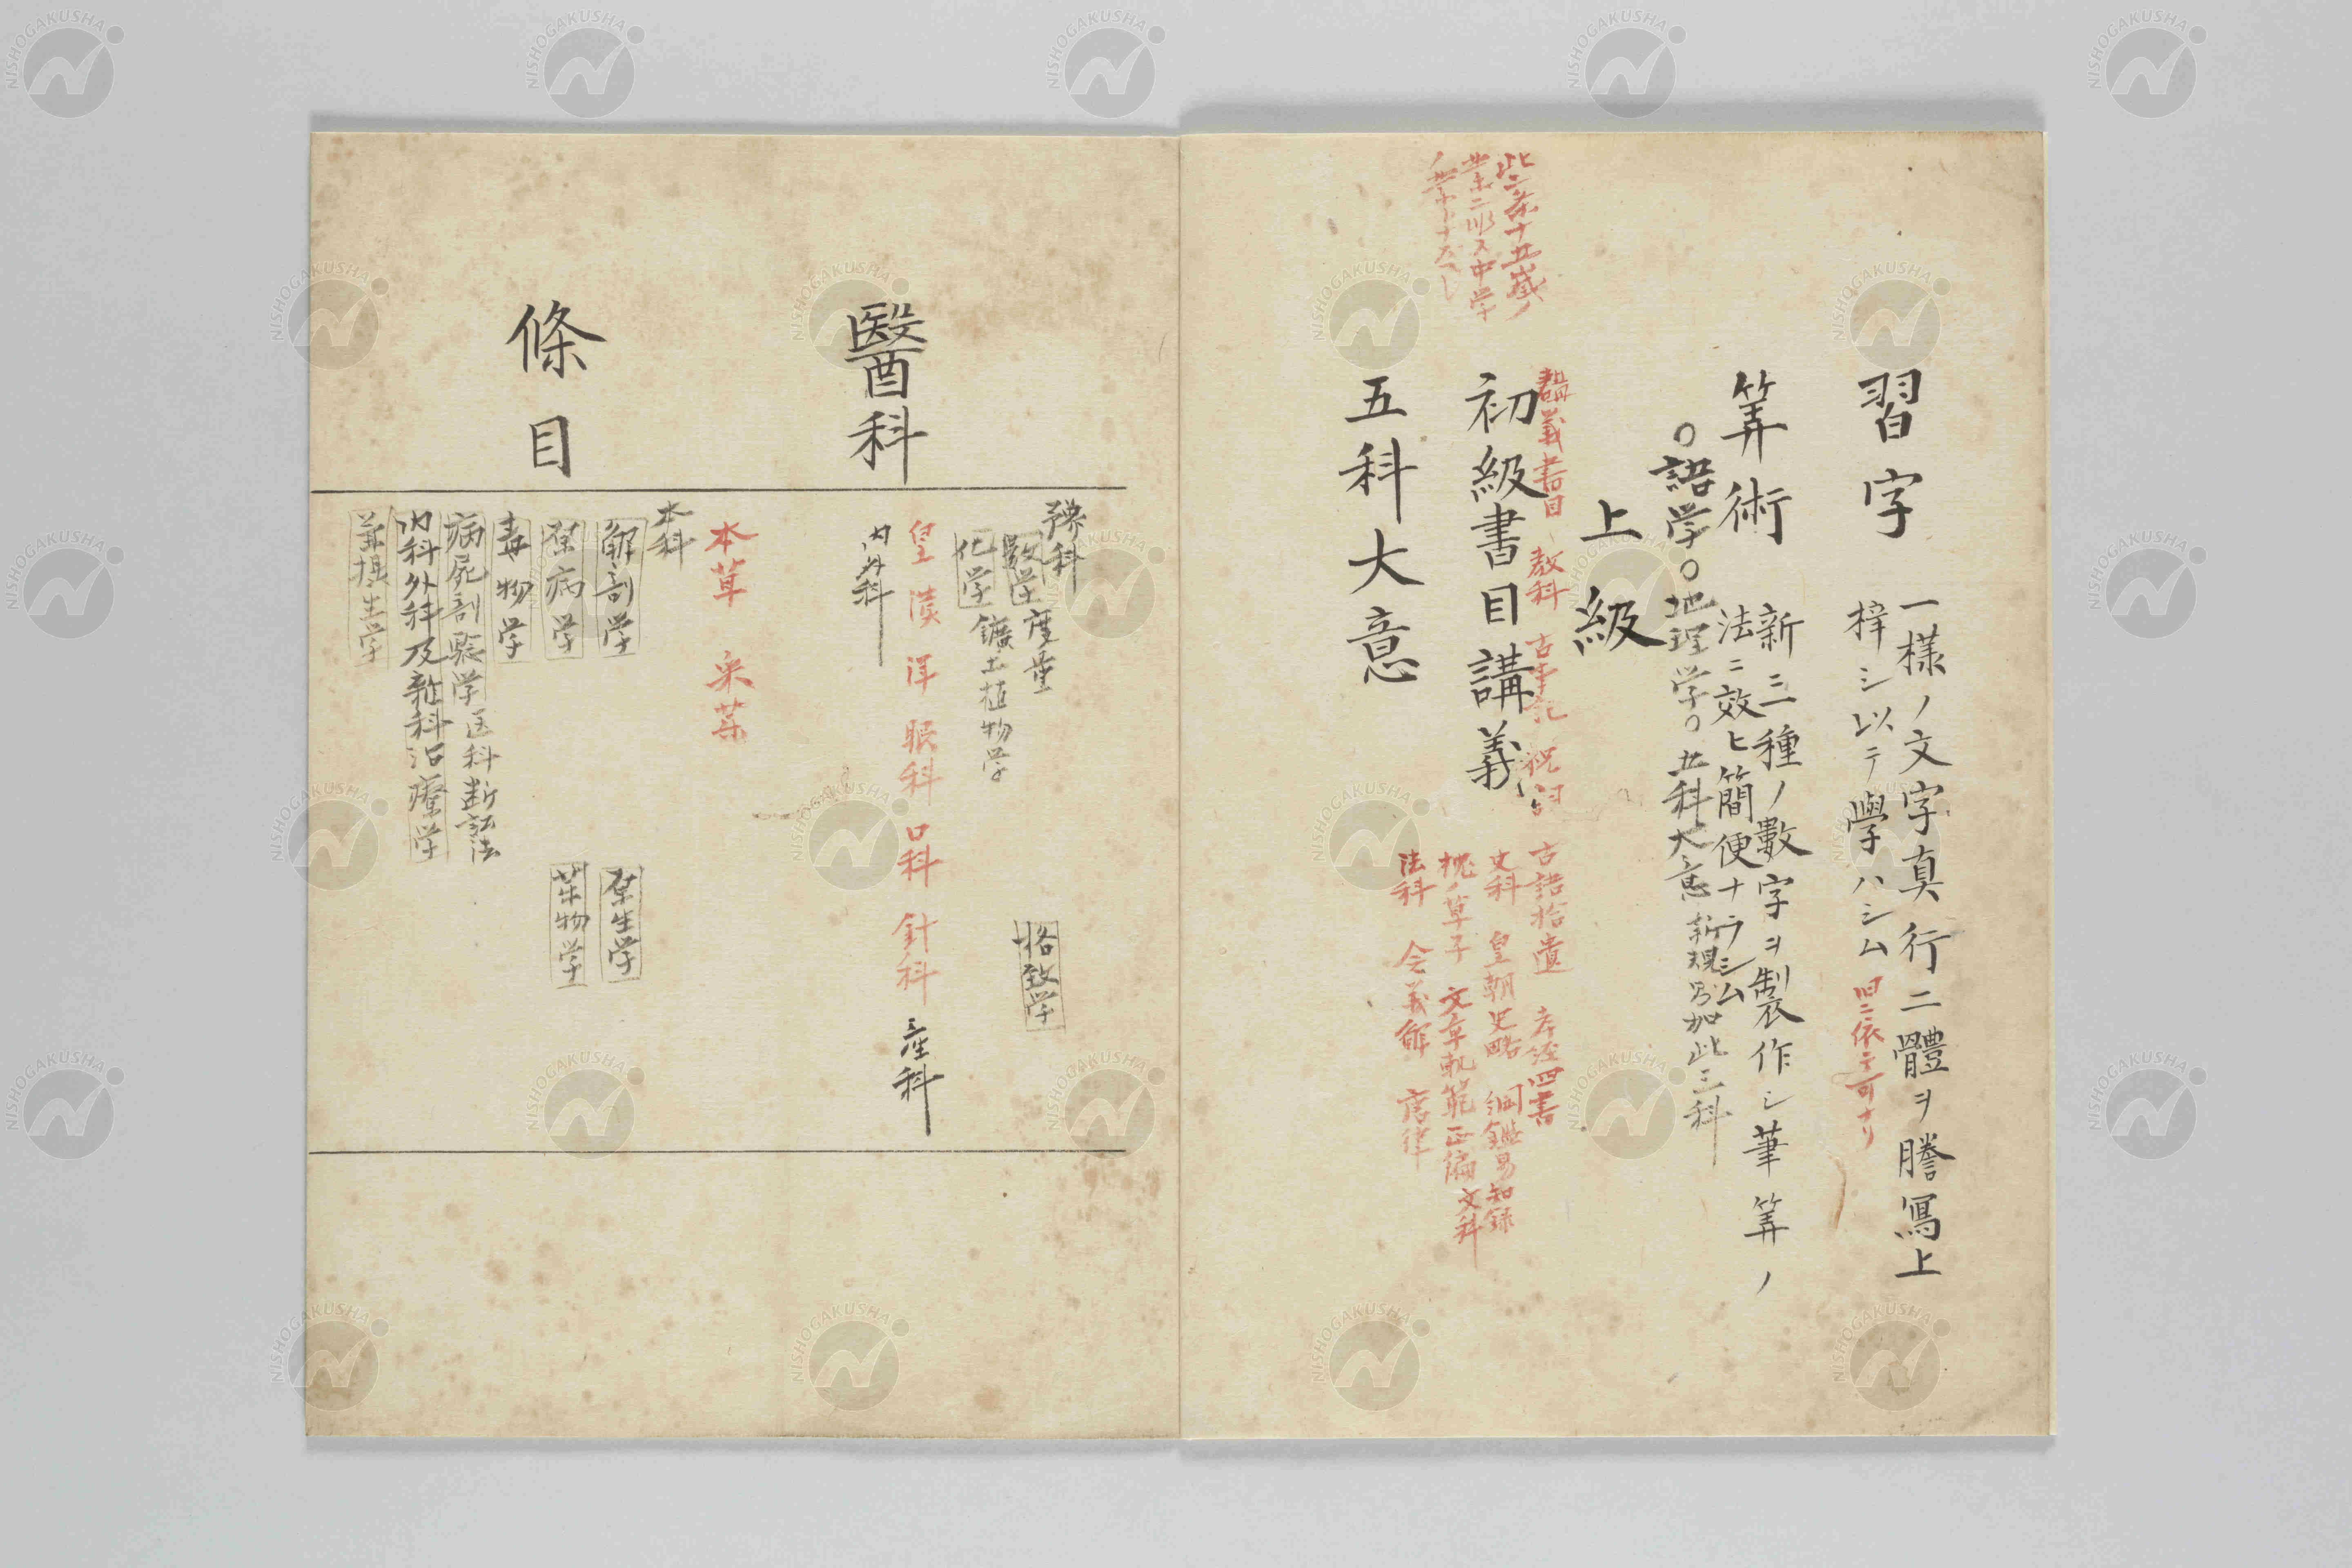 習字
一樣ノ文字真行二體ヲ謄寫上
梓シ以テ學ハシム
旧ニ依テ可ナリ
筭術
新ニ三種ノ數字ヲ製作シ筆筭ノ
法ニ效ヒ簡便ナラシム
○語学○地理学○五科大意
新規ニ加此三科
上級
此二条十五歳ノ
中学
講義書目 教科 古事記 祝詞 古語拾遺 孝経四書
初級書目講義
史科 皇朝史略 綱鑑易知録
枕ノ草子 文章軌範正編 文科
法科 令義解 唐律
五科大意
醫科
豫科
数学 度量
格致学
化学 鑛土植物学
皇漢洋 眼科 口科 針科 産科
内外科
本草 采薬
本科
解剖学
原生学
原病学
薬物学
毒物学
病屍剖驗学 医科断訟法
内科外科及雜科治療学
摂生学
條目
NISHOGAKUSHA